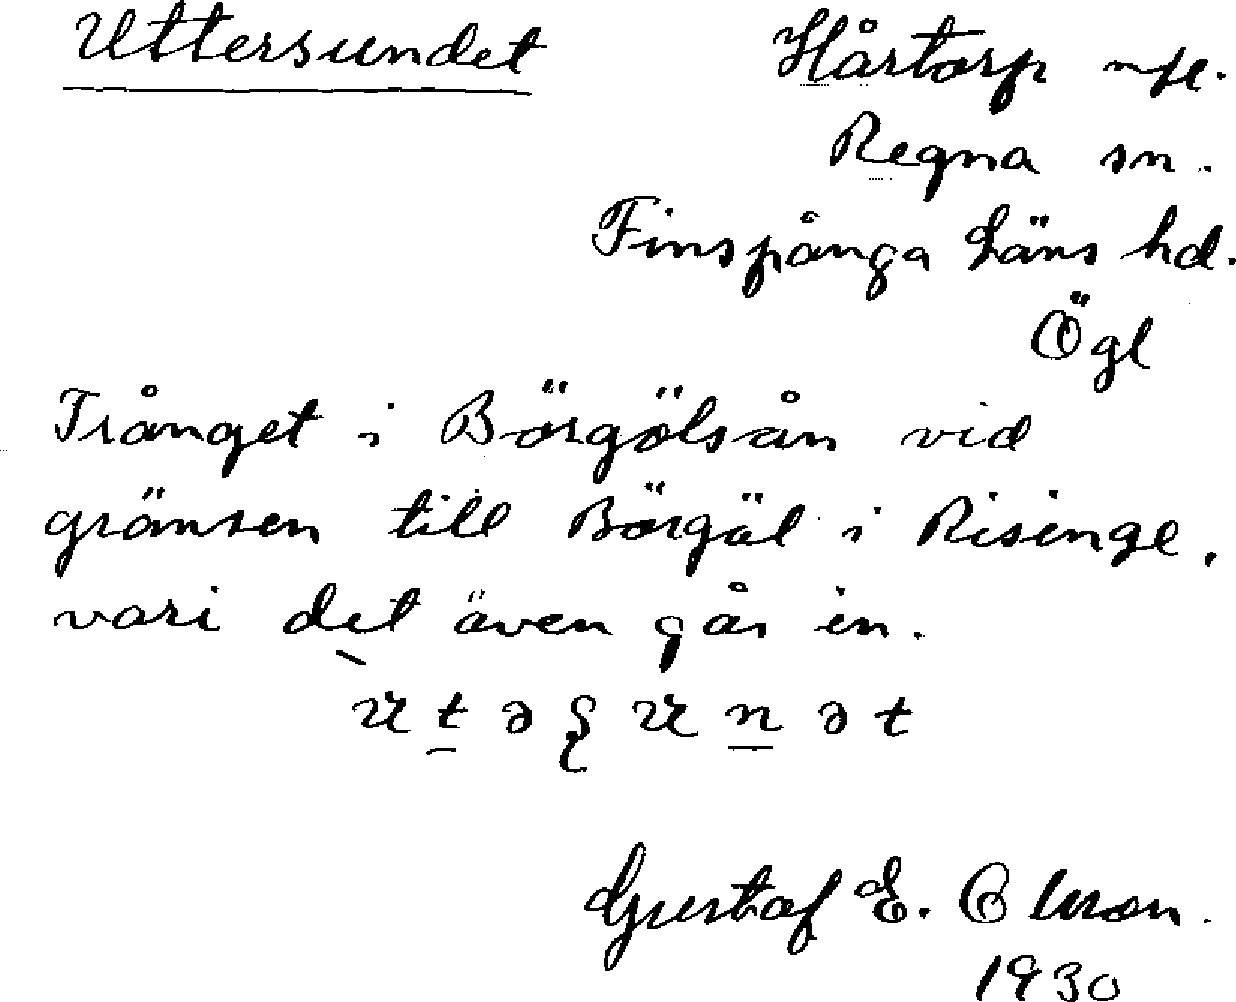 Uttersundet
Hårtorp
Regna sn.
Finspånga läns hd.
Ögl
Trånget i Börgölsån vid
gränsen till Börgöl i Risinge,
vari det även går in.
Gustaf E. Olsson.
1930